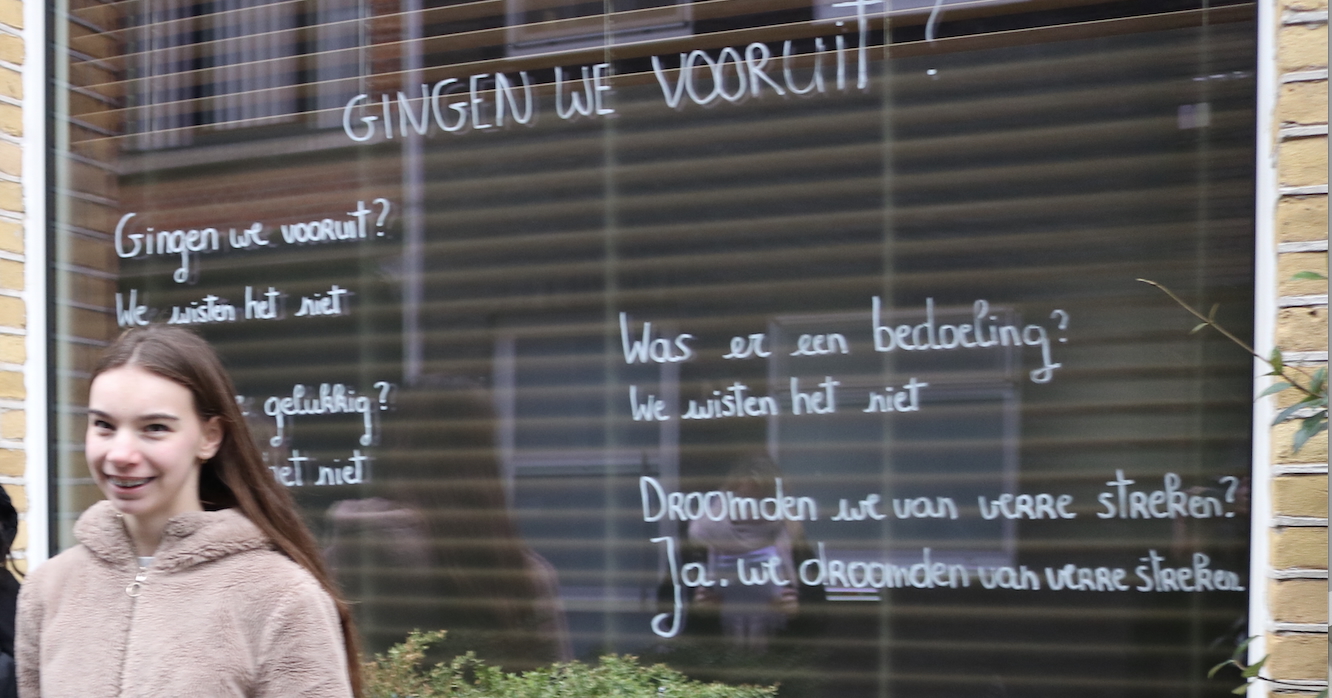 GINGEN WE VOORUIT?
Gingen we vooruit?
We wisten het niet
gelukkig?
het niet
Was er een bedoeling?
We wisten het niet
Droomden we van verre streken?
Ja. we droomden van verre streken